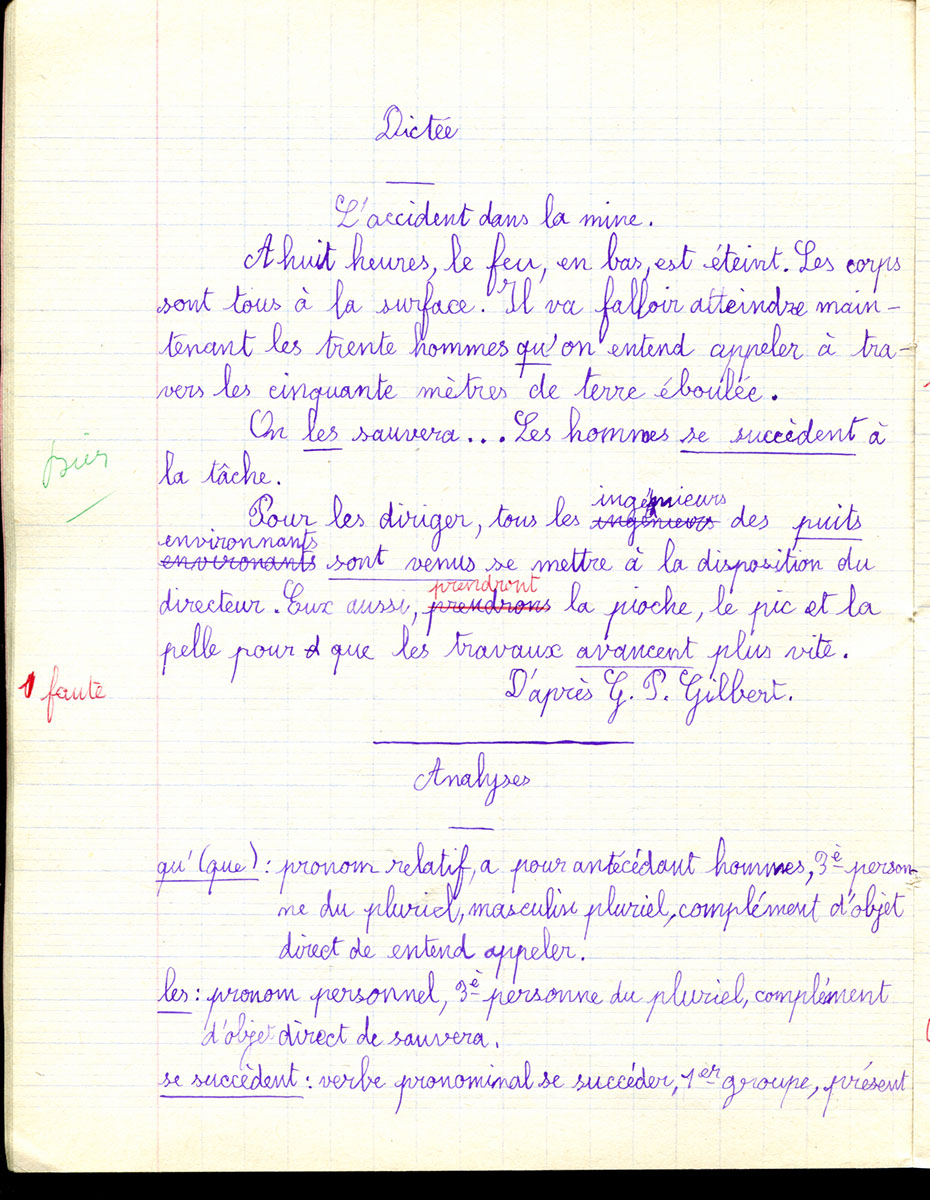 Dictée
L'accident dans la mine.
A huit heures, le feu, en bas, est éteint. Les corps
sont tous à la surface. Il va falloir atteindre main-
tenant les trente hommes qu'on entend appeler à tra-
vers les cinquante mètres de terre éboulée.
On les sauvera... Les hommes se succèdent à
la tâche.
ingénieurs
Pour les diriger, tous les ingénieurs des puits
environnants
environants sont venus se mettre à la disposition du
prendront
directeur. Eux aussi, prendrons la pioche, le pic et la
pelle pour que les travaux avancent plus vite.
1 faute
D'après G. P. Gilbert.
Analyses
qu' (que) : pronom relatif, a pour antécédant hommes, 3è person-
ne du pluriel, masculin pluriel, complément d'objet
direct de entend appeler.
les : pronom personnel, 3è personne du pluriel, complément
d'objet direct de sauvera.
se succèdent : verbe pronominal se succéder, 1er groupe, présent